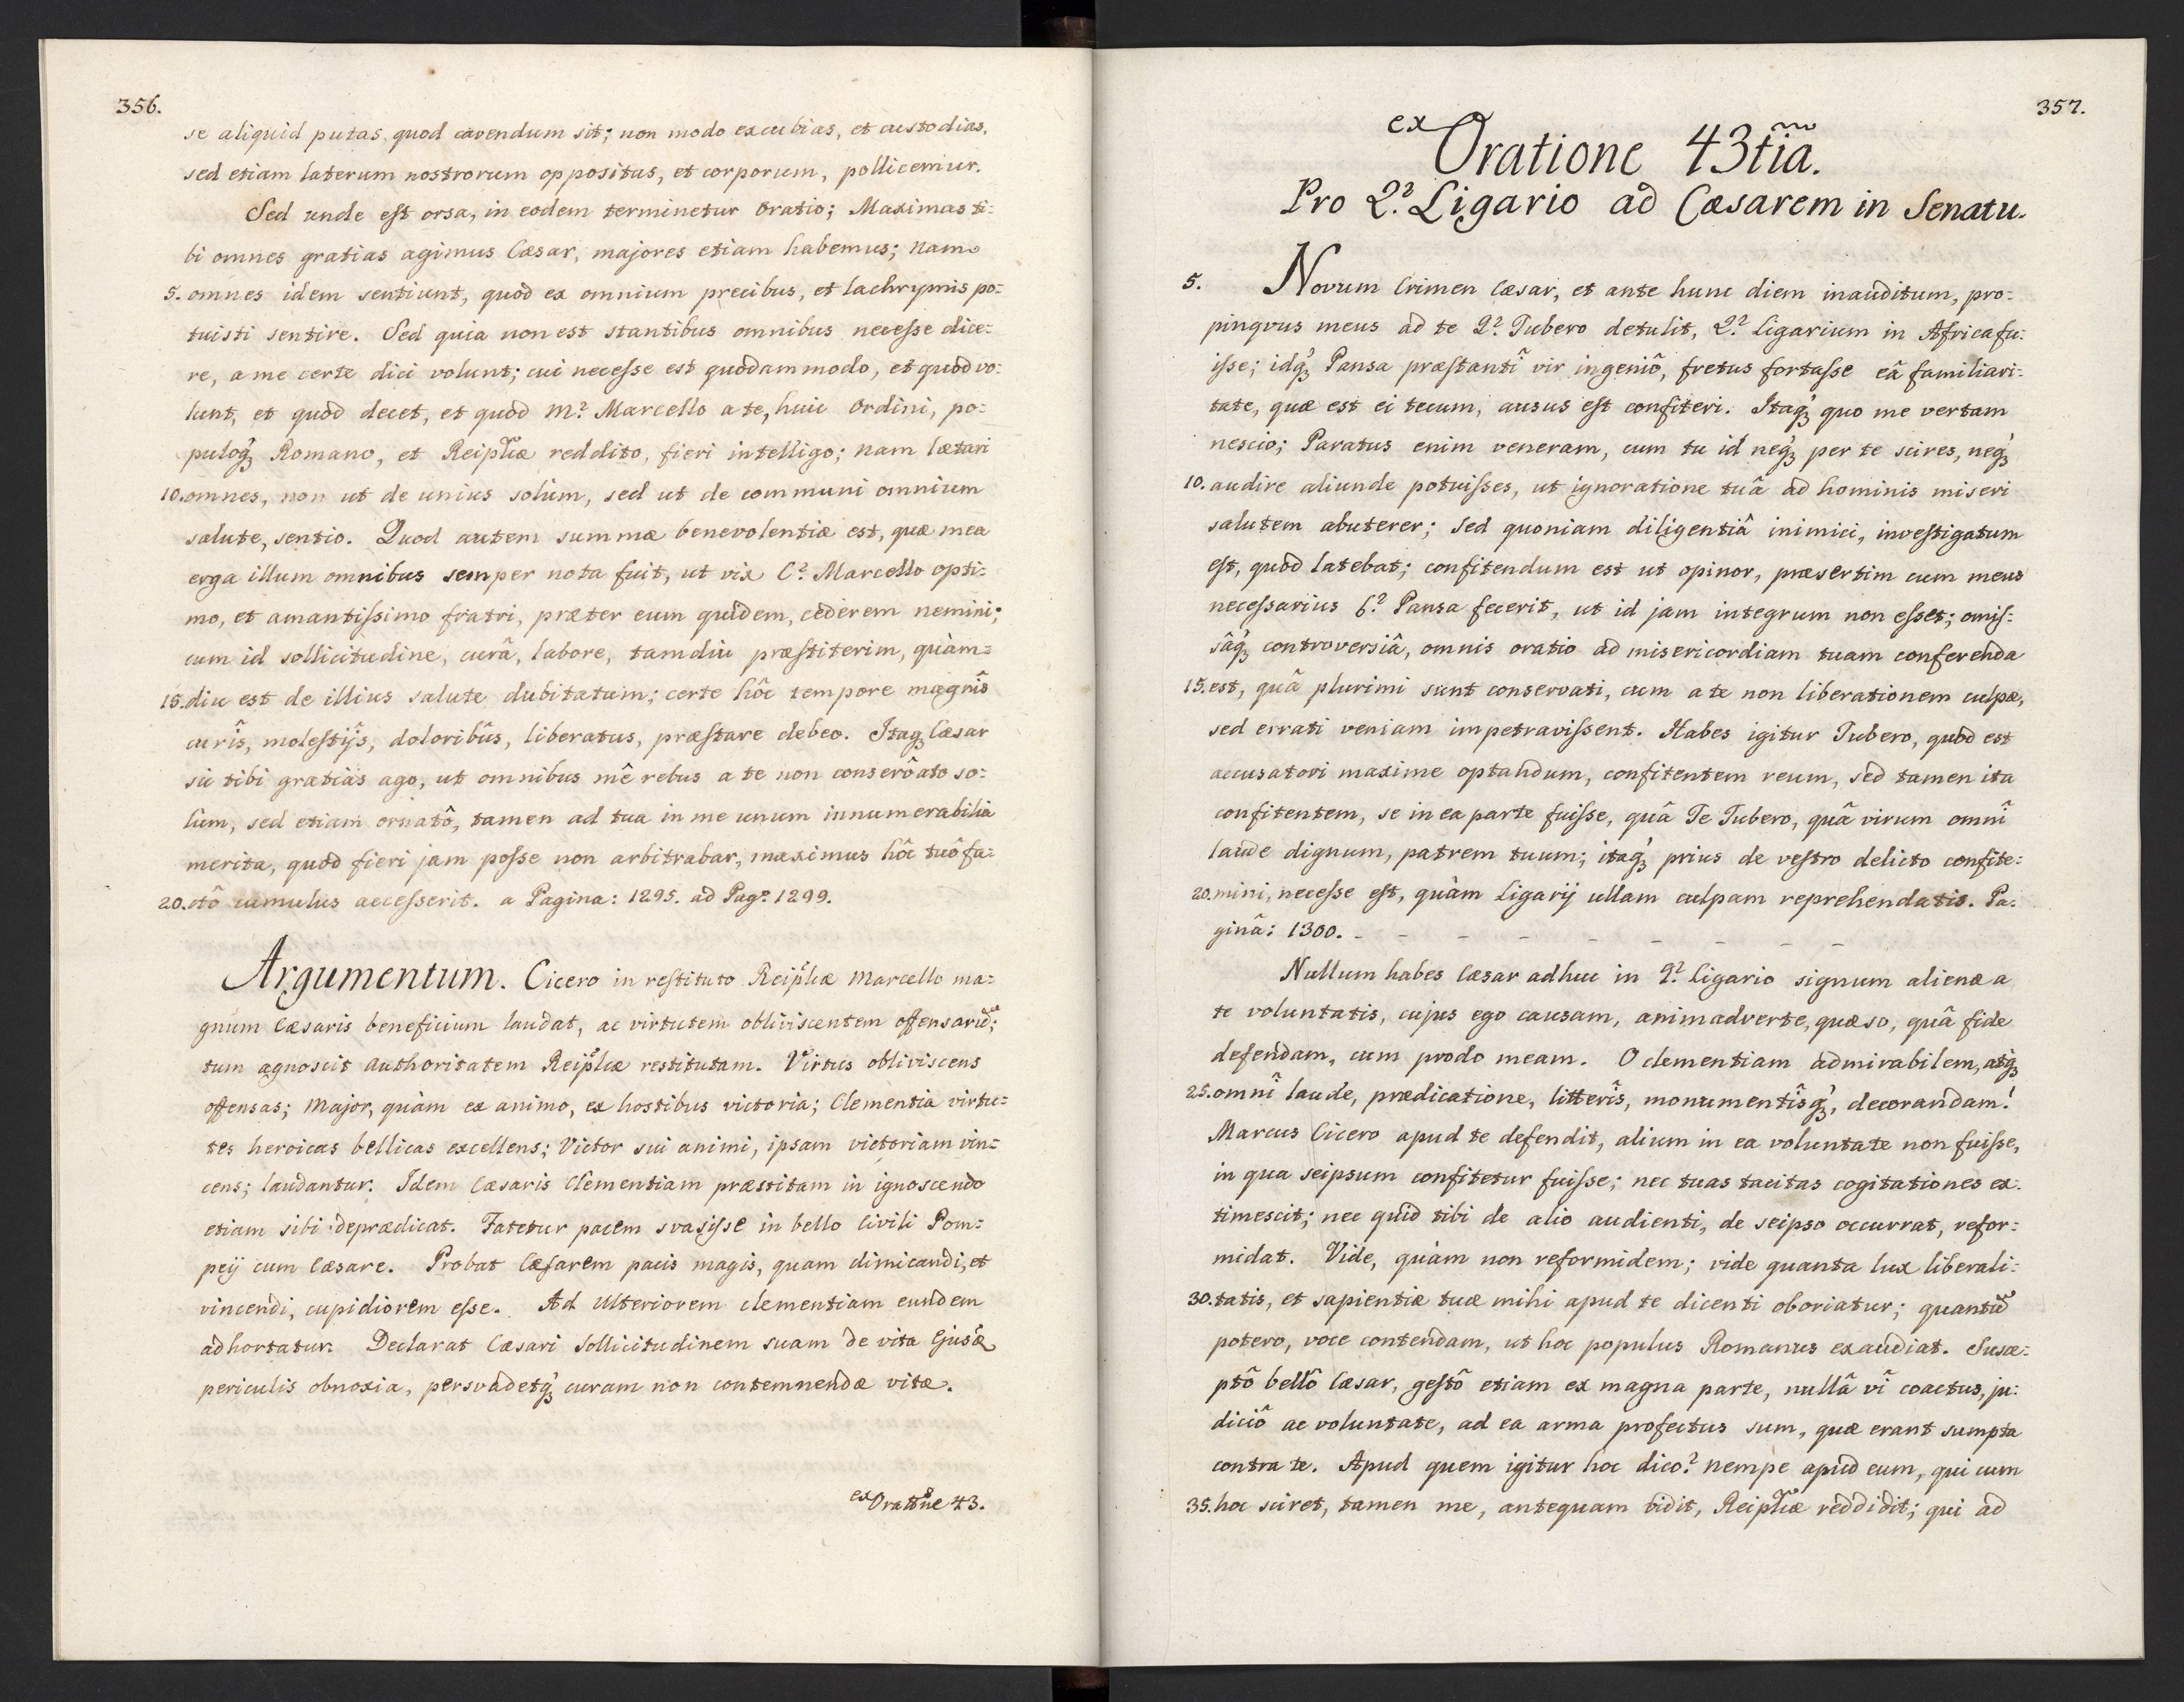 356.
se aliquid putas, quod cavendum sit; non modo excubias, et custodias,
sed etiam laterum nostrorum oppositus, et corporum, pollicemur.
Sed unde est orsa, in eodem terminetur Oratio; Maximas ti=
bi omnes gratias agimus Cæsar, majores etiam habemus; nam
5. omnes idem sentiunt, quod ex omnium precibus, et lachrymis po=
tuisti sentire. Sed quia non est stantibus omnibus necesse dice=
re, a me certe dici volunt; cui necesse est quodammodo, et quod vo=
lunt, et quod decet, et quod M? Marcello a te, huic Ordini, po=
puloq́ꝫ Romano, et Reiplicæ reddito, fieri intelligo; nam lætari
10. omnes, non ut de unius solùm, sed ut de communi omnium
salute, sentio. Quod autem summæ benevolentiæ est, quæ mea
erga illum omnibus semper nota fuit, ut vix C? Marcello opti=
mo, et amantissimo fratri, præter eum quidem, cederem nemini;
cum id sollicitudine, curâ, labore, tamdiu præstiterim, quàm=
15. diu est de illius salute dubitatum; certe hôc tempore magnîs
curîs, molestijs, doloribûs, liberatus, præstare debeo. Itaqꝫ Cæsar
sic tibi gratias ago, ut omnibus mê rebus a te non conservâto so=
lùm, sed etiam ornatô, tamen ad tua in me unum innumerabilia
merita, quod fieri jam posse non arbitrabar, maximus hôc tuô fa=
20. ctô cumulus accesserit. a Pagina: 1295. ad Pag: 1299.
Argumentum. Cicero in restituto Reiplicæ Marcello ma=
gnum Cæsaris beneficium laudat, ac virtutem obliviscentem offensarũ;
tum agnoscit authoritatem Reiplicæ restitutam. Virtus obliviscens
offensas; major, quàm ex animo, ex hostibus victoria; Clementia virtu=
tes heroicas bellicas excellens; Victor sui animi, ipsam victoriam vin=
cens; laudantur. Idem Cæsaris Clementiam præstitam in ignoscendo
etiam sibi deprædicat. Fatetur pacem svasisse in bello Civili Pom=
peij cum Cæsare. Probat Cæsarem pacis magis, quam dimicandi, et
vincendi, cupidiorem esse. Ad Ulteriorem clementiam eundem
adhortatur. Declarat Cæsari Sollicitudinem suam de vita Ejus
periculis obnoxia, persvadetq́ꝫ curam non contemnendæ vitæ.
ex Oratne 43.
357.
ex Oratione 43tia.
Pro Q? Ligario ad Cæsarem in Senatu.
5. Novum Crimen Cæsar, et ante hunc diem inauditum, pro=
pinqvus meus ad te Q? Tubero detulit, Q? Ligarium in Africa fu=
isse; idq́ꝫ Pansa præstantî vir ingeniô, fretus fortasse eâ familiari=
tate, quæ est ei tecum, ausus est confiteri. Itaq́ꝫ quo me vertam
nescio; Paratus enim veneram, cum tu id neq́ꝫ per te scires, neq́ꝫ
10. audire aliunde potuisses, ut ignoratione tuâ ad hominis miseri
salutem abuterer; Sed quoniam diligentiâ inimici, investigatum
est, quod latebat; confitendum est ut opinor, præsertim cum meus
necessarius C? Pansa fecerit, ut id jam integrum non esset; omis=
sâq́ꝫ controversiâ, omnis oratio ad misericordiam tuam conferenda
15. est, quâ plurimi sunt conservati, cum a te non liberationem culpæ,
sed errati veniam impetravissent. Habes igitur Tubero, quod est
accusatori maxime optandum, confitentem reum, sed tamen ita
confitentem, se in ea parte fuisse, quâ Te Tubero, quâ virum omnî
laude dignum, patrem tuum; itaq́ꝫ prius de vestro delicto confite=
20. mini, necesse est, quàm Ligarij ullam culpam reprehendatis. Pa=
ginâ: 1300. - - - - - - - -
Nullum habes Cæsar adhuc in Q? Ligario signum alienæ a
te voluntatis, cujus ego causam, animadverte, quæso, quâ fide
defendam, cum prodo meam. O clementiam admirabilem, atqꝫ
25. omnî laude, prædicatione, litterîs, monumentîsq́ꝫ, decorandam!
Marcus Cicero apud te defendit, alium in ea voluntate non fuisse,
in qua seipsum confitetur fuisse; nec tuas tacitas cogitationes ex=
timescit; nec quid tibi de alio audienti, de seipso occurrat, refor=
midat. Vide, quàm non reformidem; vide quanta lux liberali=
30. tatis, et sapientiæ tuæ mihi apud te dicenti oboriatur; quantũ
potero, voce contendam, ut hoc populus Romanus exaudiat. Susce=
ptô bellô Cæsar, gestô etiam ex magna parte, nullâ vî coactus, ju=
diciô ac voluntate, ad ea arma profectus sum, quæ erant sumpta
contra te. Apud quem igitur hoc dico? nempe apud eum, qui cum
35. hoc sciret, tamen me, antequam vidit, Reiplicæ reddidit; qui ad